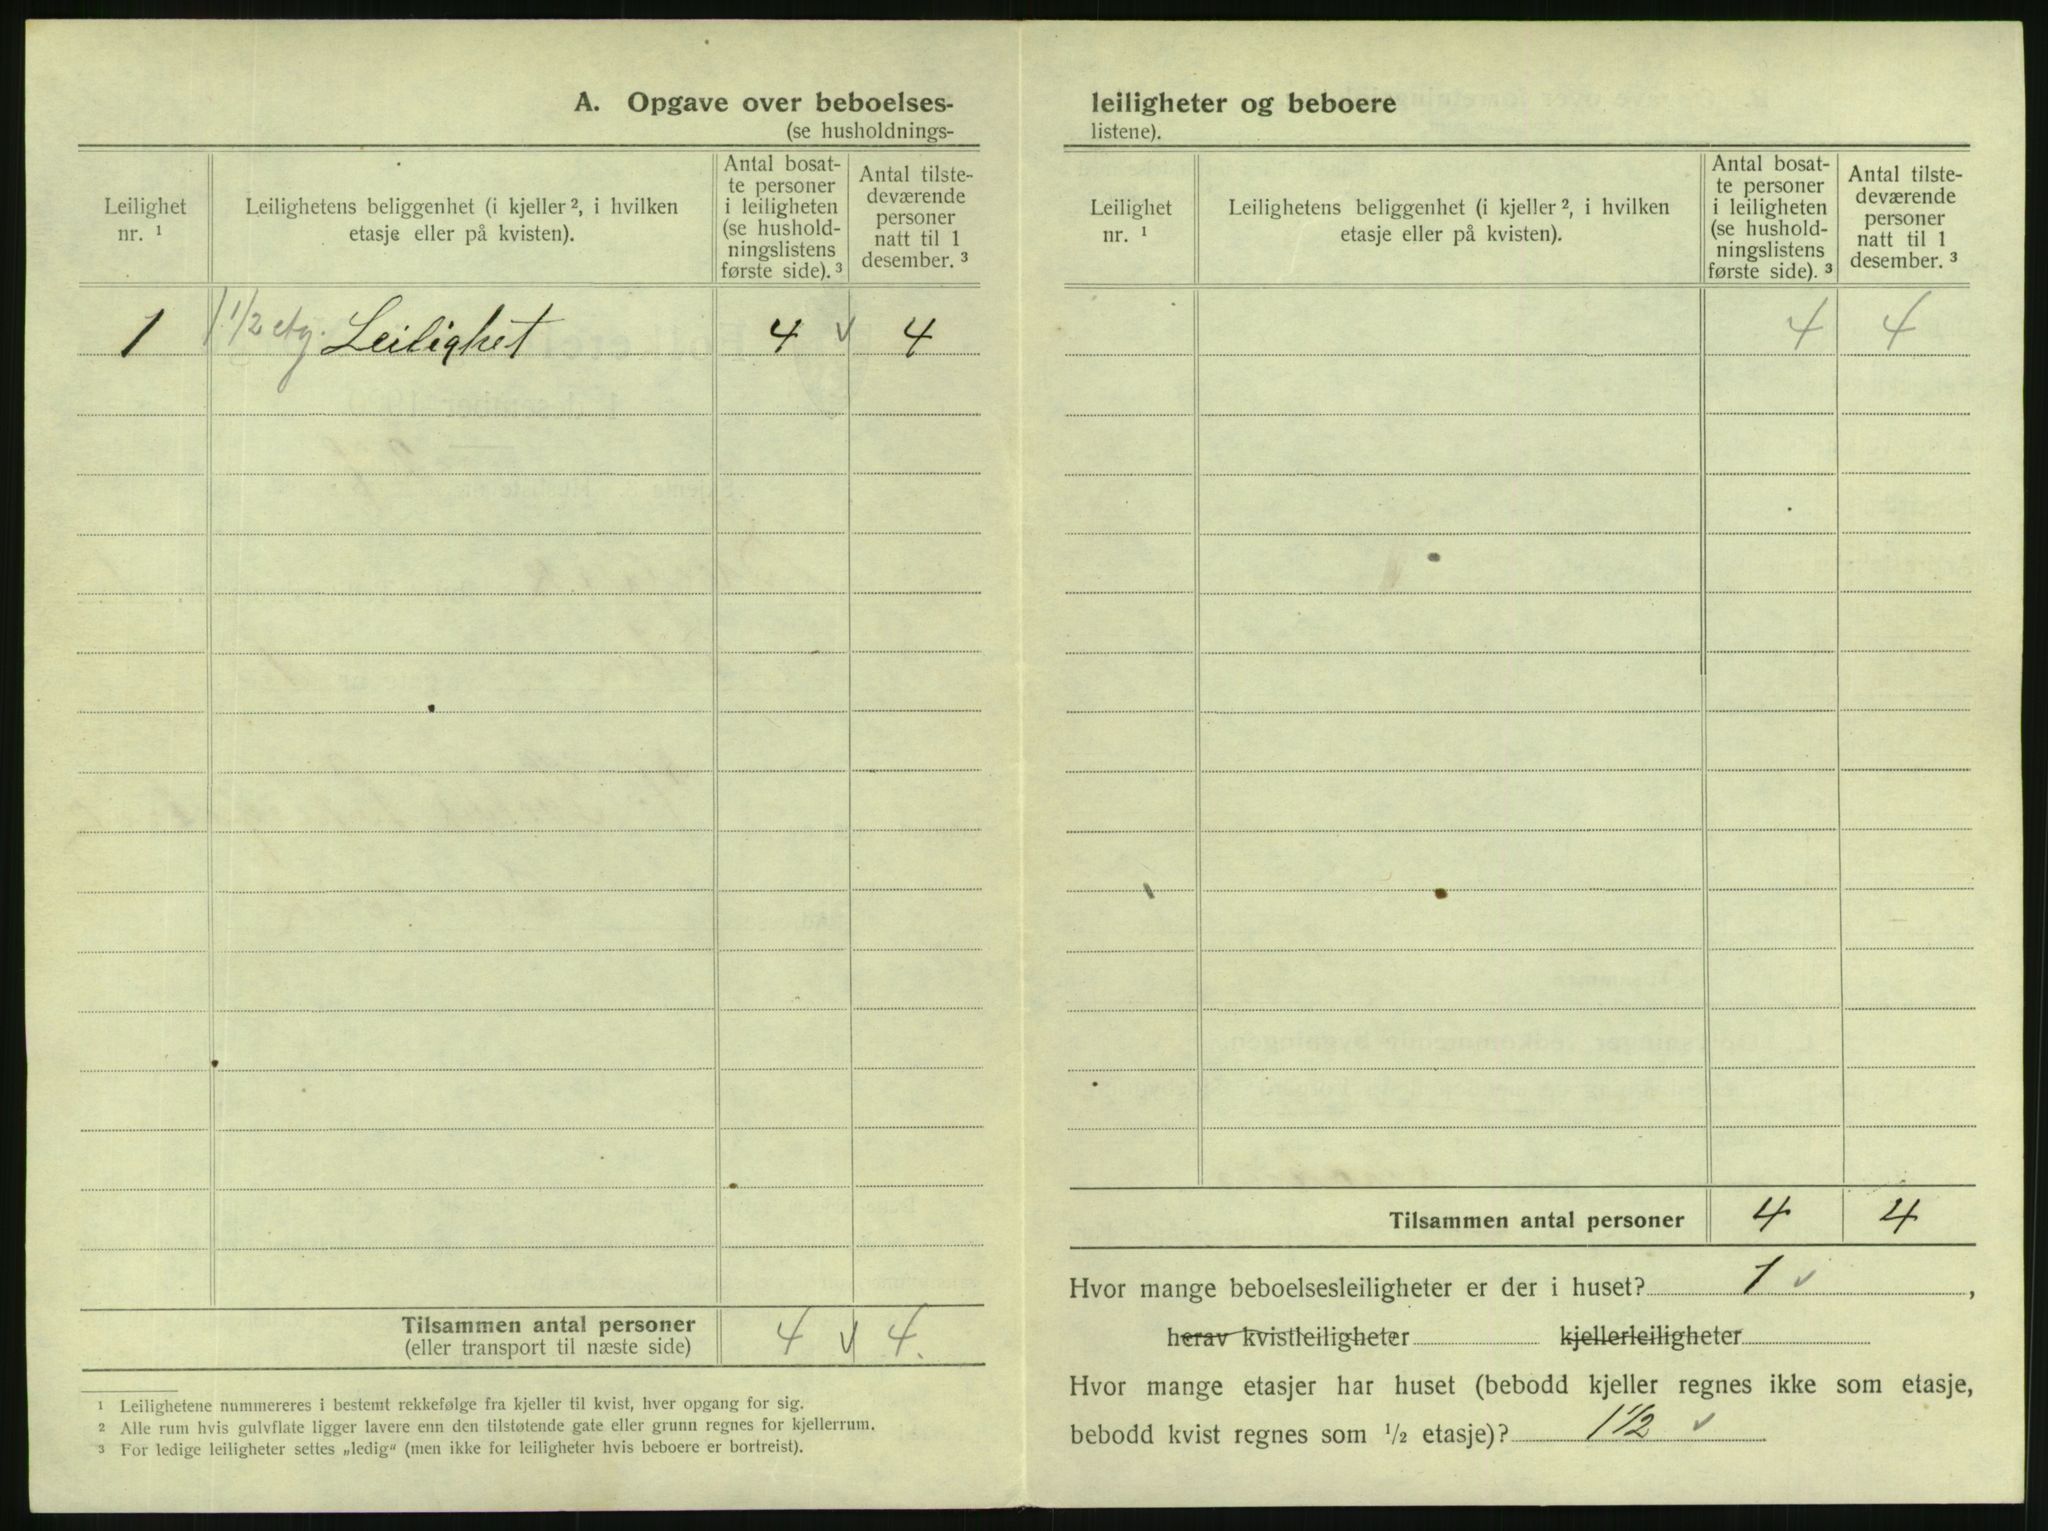 A. Opgave over beboelses-
(se husholdnings-
Leilighet nr. ¹
Leilighetens beliggenhet (i kjeller ², i hvilken etasje eller på kvisten).
Antal bosat-
te personer
i leiligheten
(se hushold-
ningslistens
første side). ³
Antal tilste-
deværende
personer
natt til 1
desember. ³
1 1 1/2 etg. Leilighet 4 v 4
Tilsammen antal personer 4 v 4.
(eller transport til næste side)
¹ Leilighetene nummereres i bestemt rekkefølge fra kjeller til kvist, hver opgang for sig.
² Alle rum hvis gulvflate ligger lavere enn den tilstøtende gate eller grunn regnes for kjellerrum.
³ For ledige leiligheter settes „ledig“ (men ikke for leiligheter hvis beboere er bortreist).
leiligheter og beboere
listene).
Leilighet nr. ¹
Leilighetens beliggenhet (i kjeller ², i hvilken etasje eller på kvisten).
Antal bosat-
te personer
i leiligheten
(se hushold-
ningslistens
første side). ³
Antal tilste-
deværende
personer
natt til 1
desember. ³
4 4
Tilsammen antal personer 4 4
Hvor mange beboelsesleiligheter er der i huset? 1 v ,
herav kvistleiligheter kjellerleiligheter
Hvor mange etasjer har huset (bebodd kjeller regnes ikke som etasje,
bebodd kvist regnes som 1/2 etasje)? 1 1/2 v